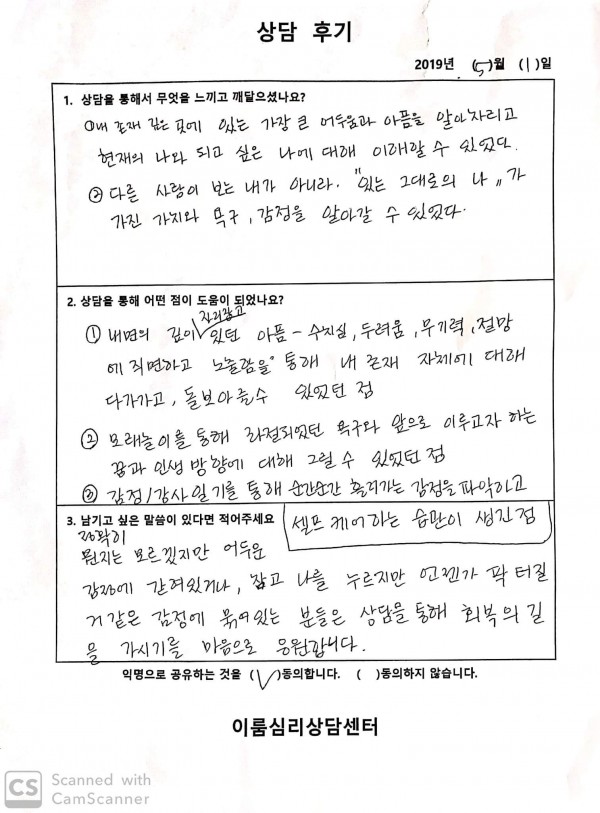 상담 후기
2019년 (5)월 (1)일
1. 상담을 통해서 무엇을 느끼고 깨달으셨나요?
①내 존재 깊은 곳에 있는 가장 큰 어두움과 아픔을 알아차리고
현재의 나와 되고 싶은 나에 대해 이해할 수 있었다.
② 다른 사람이 보는 내가 아니라. "있는 그대로의 나"가
가진 가치와 욕구, 감정을 알아갈 수 있었다.
2. 상담을 통해 어떤 점이 도움이 되었나요?
① 내면의 깊이 자리잡고 있던 아픔 - 수치심, 두려움, 무기력, 절망
에 직면하고 통해 내 존재 자체에 대해
다가가고, 돌보아줄수 있었던 점
② 모래놀이를 통해 좌절되었던 욕구와 앞으로 이루고자 하는
꿈과 인생 방향에 대해 그릴 수 있었던 점
③ 감정/감사일기를 통해 순간순간 흘러가는 감정을 파악하고
셀프케어하는 습관이 생긴점
3. 남기고 싶은 말씀이 있다면 적어주세요
정확히
뭔지는 모르겠지만 어두운
감정에 갇혀있거나, 참고 나를 누르지만 언젠가 팍 터질
거 같은 감정에 묶여있는 분들은 상담을 통해 회복의 길
을 가시기를 마음으로 응원합니다.
익명으로 공유하는 것을 (✓)동의합니다. ( )동의하지 않습니다.
이룸심리상담센터
CS Scanned with
CamScanner